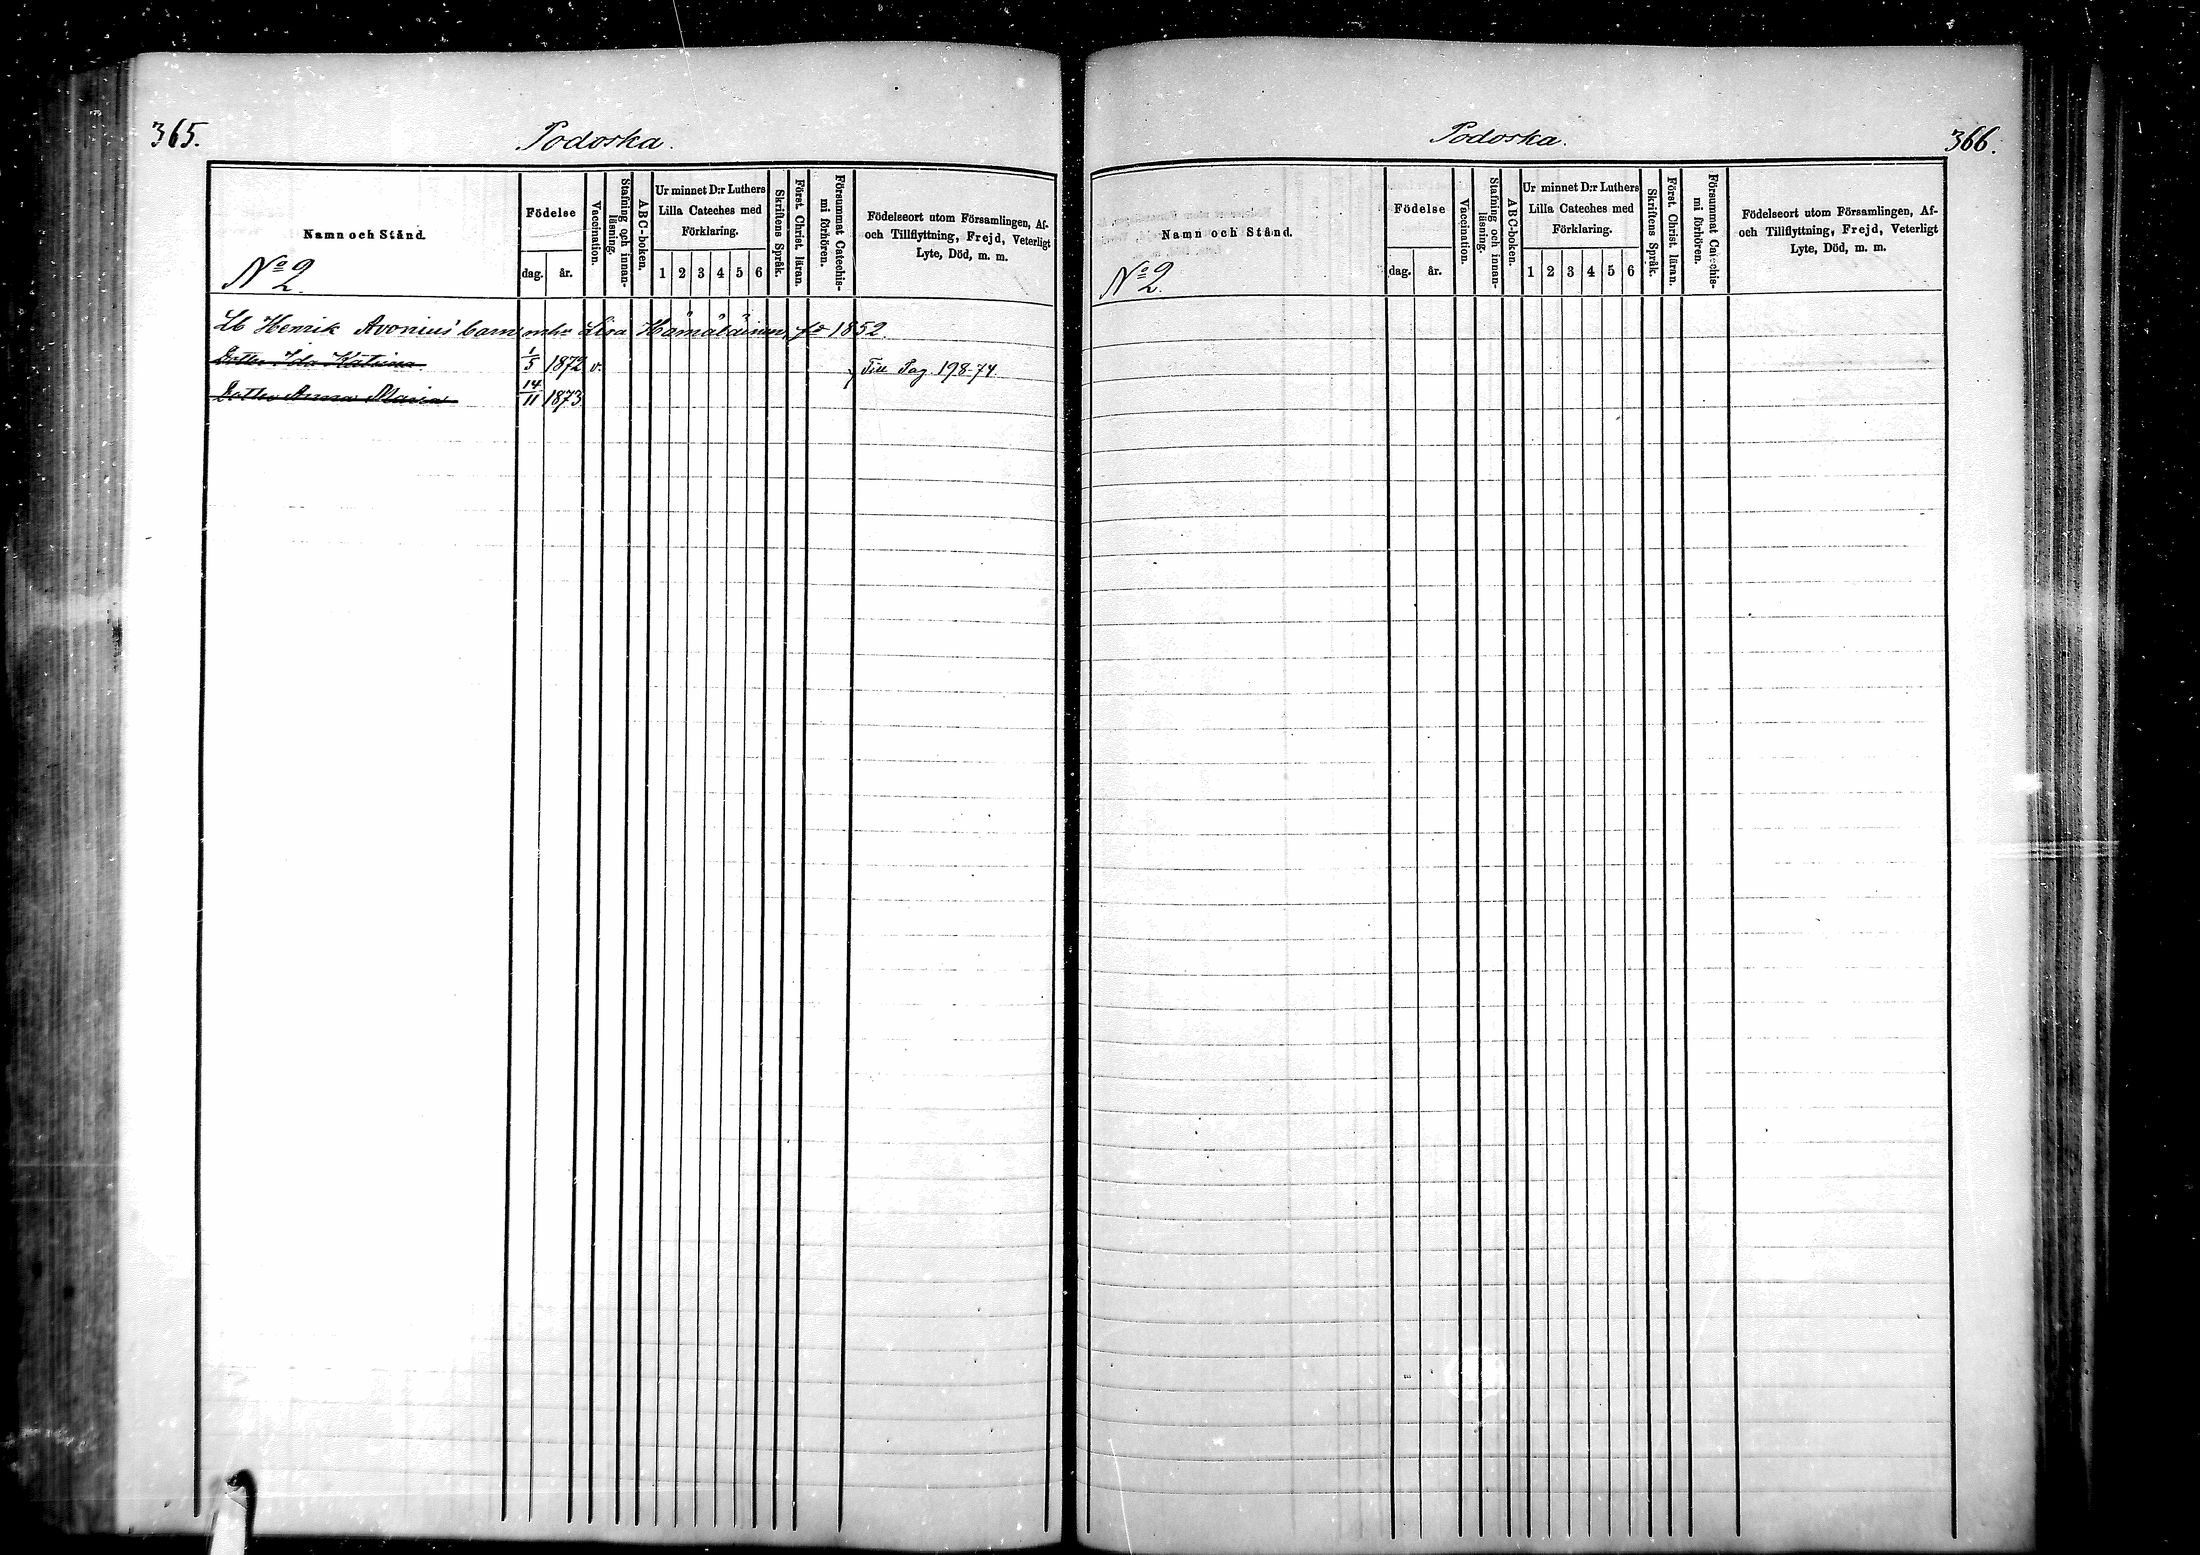 365.
Podoska.
Namn och Stånd.
No 2.
Födelse
dag. år.
Vaccination.
Stafning och innan-
läsning.
ABC-boken.
Ur minnet D:r Luthers
Lilla Cateches med
Förklaring.
1 2 3 4 5 6
Skriftens Språk.
Först. Christ. läran.
Försummat Catechis-
mi förhören.
Födelseort utom Församlingen, Af-
och Tillflyttning, Frejd, Veterligt
Lyte, Död, m. m.
Lb Henrik Avonius' barn, mhr Lisa Hämäläinen, fd 1852.
Dotter Ida Katrina 1/5 1872 v. Till Pag. 198-74.
Dotter Anna Maria 14/11 1873.
Podoska.
366.
Namn och Stånd.
No 2.
Födelse
dag. år.
Vaccination.
Stafning och innan-
läsning.
ABC-boken.
Ur minnet D:r Luthers
Lilla Cateches med
Förklaring.
1 2 3 4 5 6
Skriftens Språk.
Först. Christ. läran.
Försummat Catechis-
mi förhören.
Födelseort utom Församlingen, Af-
och Tillflyttning, Frejd, Veterligt
Lyte, Död, m. m.